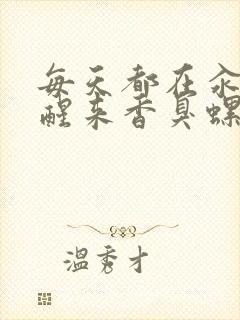 每天都在汆
醒来香臭螺
温秀才